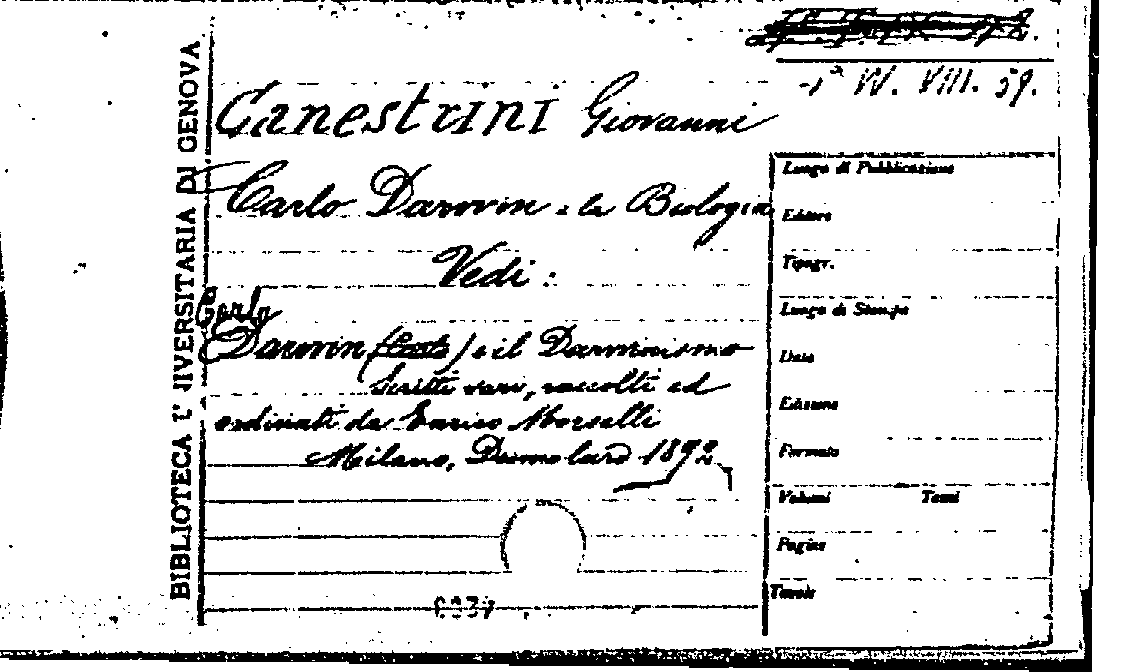 1ª W. VIII. 59.
Canestrini Giovanni
Carlo Darwin e la Biologia
Vedi :
Carlo
Darwin (Carlo) e il Darwinismo
Scritti vari, raccolti ed
ordinati da Enrico Morselli
Milano, Dumolard 1892
BIBLIOTECA UNIVERSITARIA DI GENOVA
Luogo di Pubblicazione
Editore
Tipogr.
Luogo di Stampa
Data
Edizione
Formato
Volumi Tomi
Pagine
Tavole